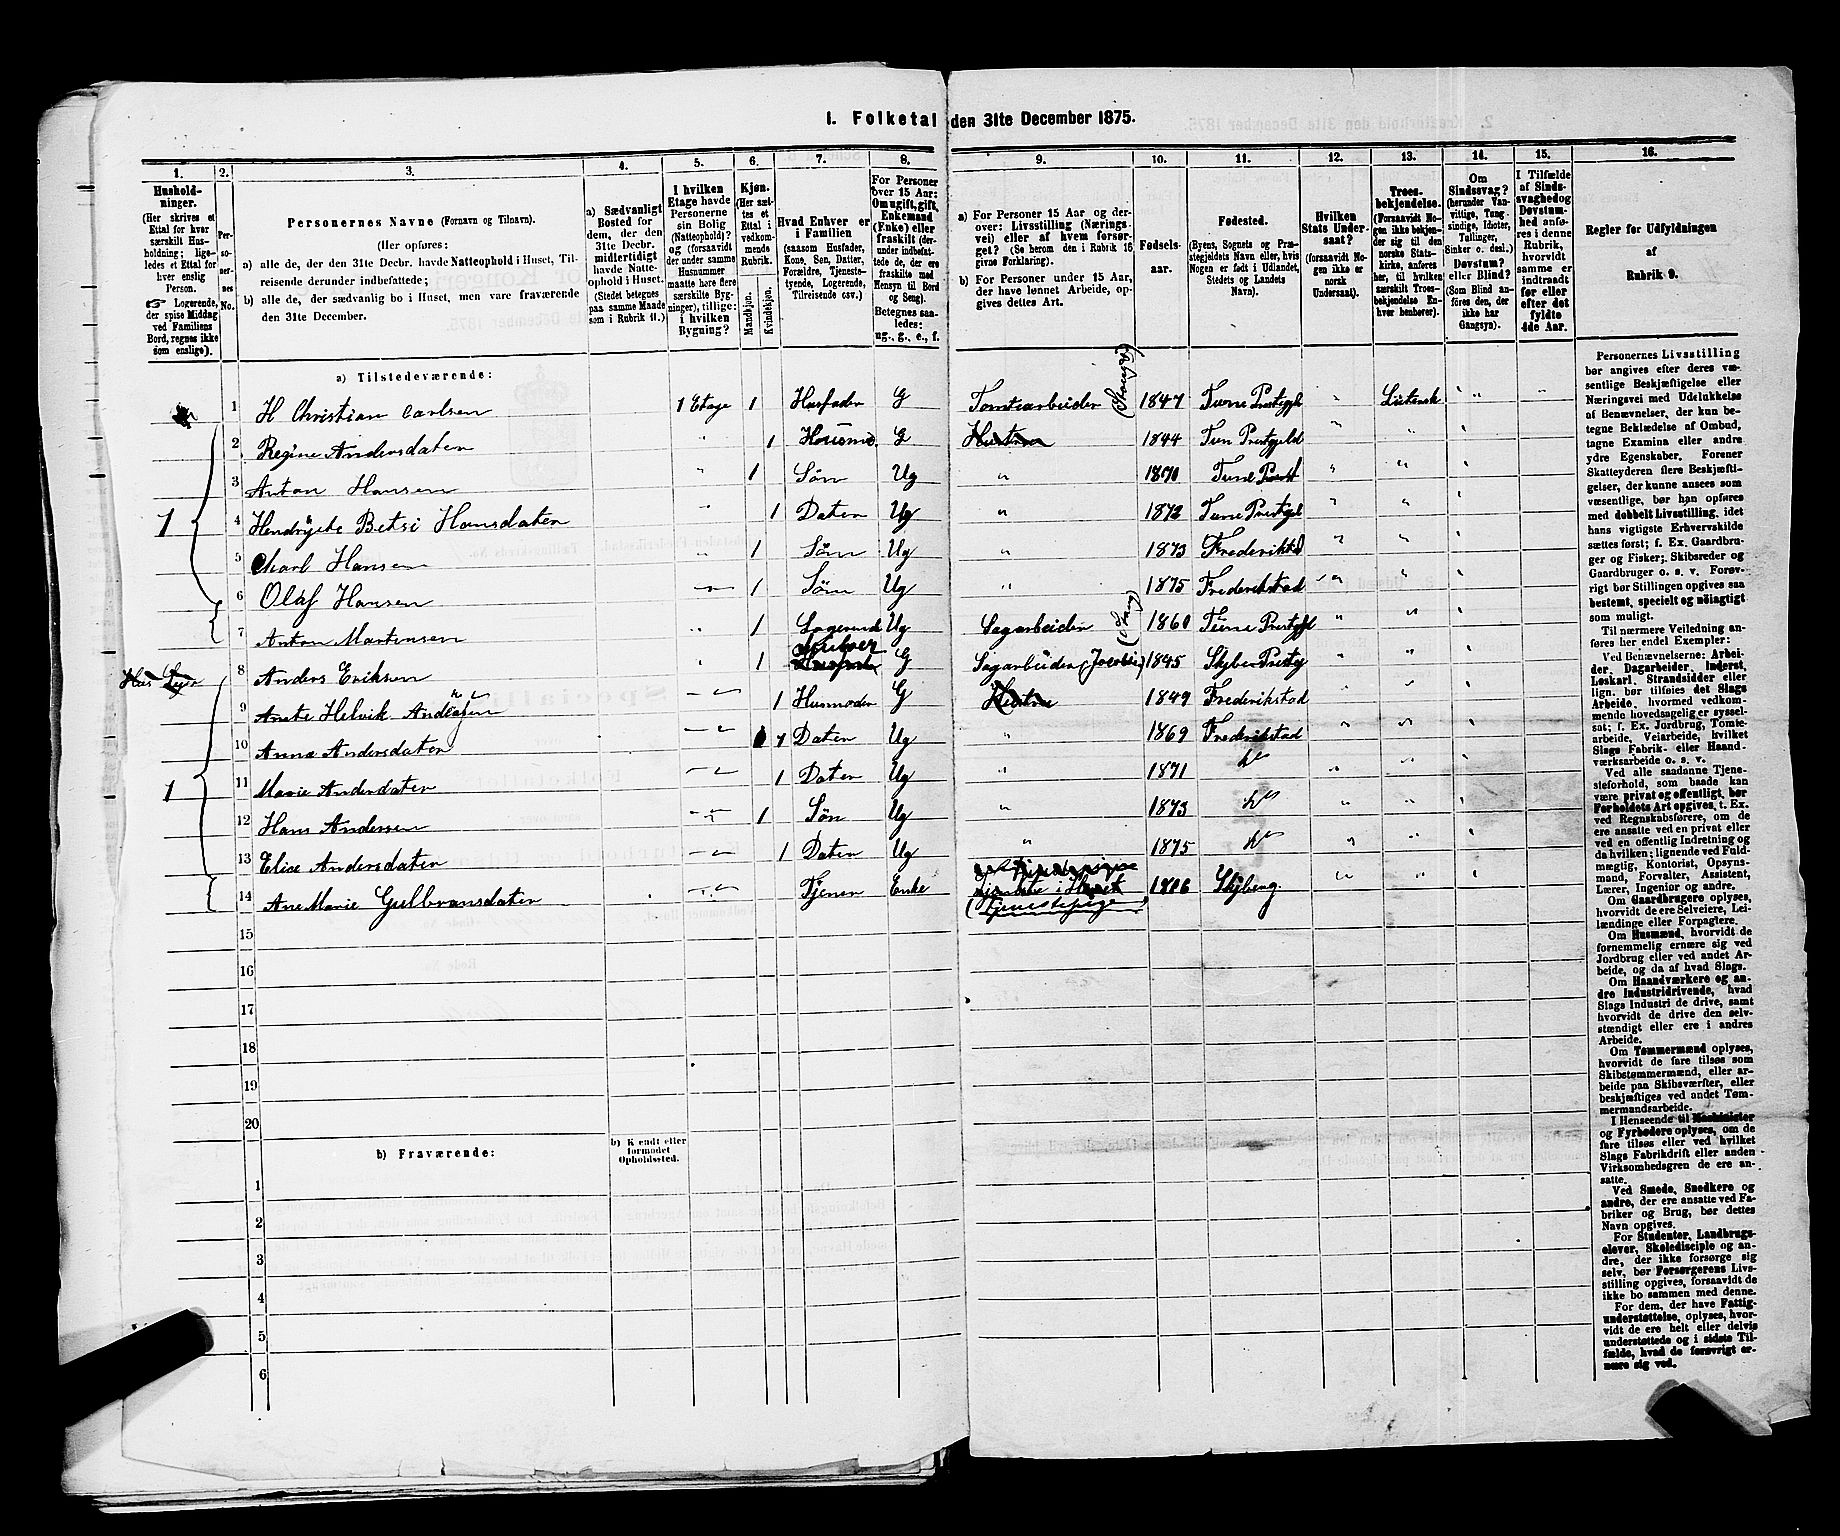 I. Folketal den 31te December 1875.
1. 2. 3. 4. 5. 6. 7. 8. 9. 10. 11. 12. 13. 14. 15. 16.
Hushold-
ninger.
(Her skrives et
Ettal for hver
særskilt Hus-
holdning; lige-
ledes et Ettal for
hver enslig
Person.
☞ Logerende,
der spise Middag
ved Familiens
Bord, regnes ikke
som enslige).
Per-
soner-
nes
No.
Personernes Navne (Fornavn og Tilnavn).
(Her opføres:
a) alle de, der den 31te Decbr. havde Natteophold i Huset, Til-
reisende derunder indbefattede;
b) alle de, der sædvanlig bo i Huset, men vare fraværende
den 31te December.
a) Sædvanligt
Bosted for
dem, der den
31te Decbr.
midlertidigt
havde Natte-
ophold i Huset.
(Stedet betegnes
paa samme Maade
som i Rubrik 11.)
I hvilken
Etage havde
Personerne
sin Bolig
(Natteophold)?
og (forsaavidt
der under samme
Husnummer
maatte høre flere
særskilte Byg-
ninger), tillige:
i hvilken
Bygning?
Kjøn.
(Her sæt-
tes et
Ettal i
vedkom-
mende
Rubrik.
Mandkjøn.
Kvindekjøn.
Hvad Enhver er
i Familien
(saasom Husfader,
Kone, Søn, Datter,
Forældre, Tjeneste-
tyende, Logerende,
Tilreisende osv.)
For Personer
over 15 Aar:
Om ugift, gift,
Enkemand
(Enke) eller
fraskilt (der-
under indbefat-
tede de, der ere
fraskilte med
Hensyn til Bord
og Seng).
Betegnes saa-
ledes:
ug., g., e., f.
a) For Personer 15 Aar og der-
over: Livsstilling (Nærings-
vei) eller af hvem forsør-
get? (Se herom den i Rubrik 16
givne Forklaring).
b) For Personer under 15 Aar,
der have lønnet Arbeide, op-
gives dettes Art.
Fødsels-
aar.
Fødested.
(Byens, Sognets og Præ-
stegjeldets Navn eller, hvis
Nogen er født i Udlandet,
Stedets og Landets
Navn).
Hvilken
Stats Under-
saat?
(forsaavidt No-
gen ikke er
norsk
Undersaat).
Troes-
bekjendelse.
(Forsaavidt No-
gen ikke bekjen-
der sig til den
norske Stats-
kirke, anføres
her, til hvilken
særskilt Troes-
bekjendelse En-
hver henhører).
Om
Sindssvag?
(herunder Van-
vittige, Tung-
sindige, Idioter,
Tullinger,
Sinker o. desl.)
Døvstum?
eller Blind?
(Som Blind an-
føres den, der
ikke har
Gangsyn).
I Tilfælde
af Sinds-
svaghed og
Døvstum-
hed anfø-
res i denne
Rubrik,
hvorvidt
samme er
indtraadt
før eller
efter det
fyldte
4de Aar.
Regler for Udfyldningen
af
Rubrik 9.
a) Tilstedeværende:
1 H Christian Carlsen 1 Etage 1 Husfader G Tomtearbeider 1847 Tune Prestegjl " Lutersk " "
2 Regine Andersdaten " 1 Housmo. G Hustrue 1844 Tun Prestgjeld " " "
3 Anton Hansen " 1 Søn Ug " 1870 Tune Prest " " "
1 4 Hendrijete Betsi Hansdaten " 1 Daten Ug " 1872 Tune Prestgjel " " "
5 Charl Hansen " 1 Søn Ug " 1873 Frederiksd " " "
6 Olaf Hansen " 1 Søn Ug " 1875 Frederikstad " " "
7 Anton Martensen " 1 Logerende Ug Sagarbeider 1860 Tune Prestgjl " " "
8 Anders Eriksen " 1 G Sagarbeider 1845 Skjber Prestg " " "
9 Anete Helvik Andersen " 1 Husmoder G Hustrue 1849 Frederikstad " " "
10 Anna Andersdaten " 1 Daten Ug " 1869 Frederikstad " " "
1 11 Marie Andersdaten " 1 Daten Ug " 1871 do " " "
12 Hans Andersen " 1 Søn Ug " 1873 do " " "
13 Elise Andersdaten " 1 Daten Ug " 1875 do " " "
14 Ane Marie Gulbransdaten " Tjener Enke i Huset 1806 Skjberg. " " "
(Tjenestepige)
15
16
17
18
19
20
b) Fraværende:
b) Kjendt eller
formodet
Opholdssted.
1
2
3
4
5
6
Personernes Livsstilling
bør angives efter deres væ-
sentlige Beskjæftigelse eller
Næringsvei med Udelukkelse
af Benævnelser, der kun be-
tegne Beklædelse af Ombud,
tagne Examina eller andre
ydre Egenskaber. Forener
Skatteyderen flere Beskjæfti-
gelser, der kunne ansees som
væsentlige, bør han opføres
med dobbelt Livsstilling, idet
hans vigtigste Erhvervskilde
sættes først; f. Ex. Gaardbru-
ger og Fisker; Skibsreder og
Gaardbruger o. s. v. Forøv-
rigt bør Stillingen opgives saa
bestemt, specielt og nöiagtigt
som muligt.
Til nærmere Veiledning an-
føres her endel Exempler:
Ved Benævnelserne: Arbei-
der, Dagarbeider, Inderst,
Løskarl, Strandsidder eller
lign. bør tilføies det Slags
Arbeide, hvormed vedkom-
mende hovedsagelig er syssel-
sat; f. Ex. Jordbrug, Tomte-
arbeide, Veiarbeide, hvilket
Slags Fabrik- eller Haand-
værksarbeide o. s. v.
Ved alle saadanne Tjene-
steforhold, som baade kan
være privat og offentligt, bør
Forholdets Art opgives, t. Ex.
ved Regnskabsførere, om de
ere ansatte ved en privat eller
ved en offentlig Indretning og
da hvilken; lignende ved Fuld-
mægtig, Kontorist, Opsyns-
mand, Forvalter, Assistent,
Lærer, Ingeniør og andre.
Om Gaardbrugere oplyses,
hvorvidt de ere Selveiere, Lei-
lændinge eller Forpagtere.
Om Husmænd, hvorvidt de
fornemmelig ernære sig ved
Jordbrug eller ved andet Ar-
beide, og da af hvad Slags.
Om Haandværkere og an-
dre Industridrivende, hvad
Slags Industri de drive, samt
hvorvidt de drive den selv-
stændigt eller ere i andres
Arbeide.
Om Tømmermænd oplyses,
hvorvidt de fare tilsøs som
Skibstømmermænd, eller ar-
beide paa Skibsværfter, eller
beskjæftiges ved andet Tøm-
mermandsarbeide.
I Henseende til Maskinister
og Fyrbødere oplyses, om de
fare tilsøs eller ved hvilket
Slags Fabrikdrift eller anden
Virksomhedsgren de ere an-
satte.
Ved Smede, Snedkere og
andre, der ere ansatte ved Fa-
briker og Brug, bør dettes
Navn opgives.
For Studenter, Landbrugs-
elever, Skoledisciple og an-
dre, der ikke forsørge sig
selv, bør Forsørgerens Livs-
stilling opgives, forsaavidt de
ikke bo sammen med denne.
For dem, der have Fattig-
understøttelse, oplyses, hvor-
vidt de ere helt eller delvis
understøttede og i sidste Til-
fælde, hvad de forøvrigt er-
nære sig ved.